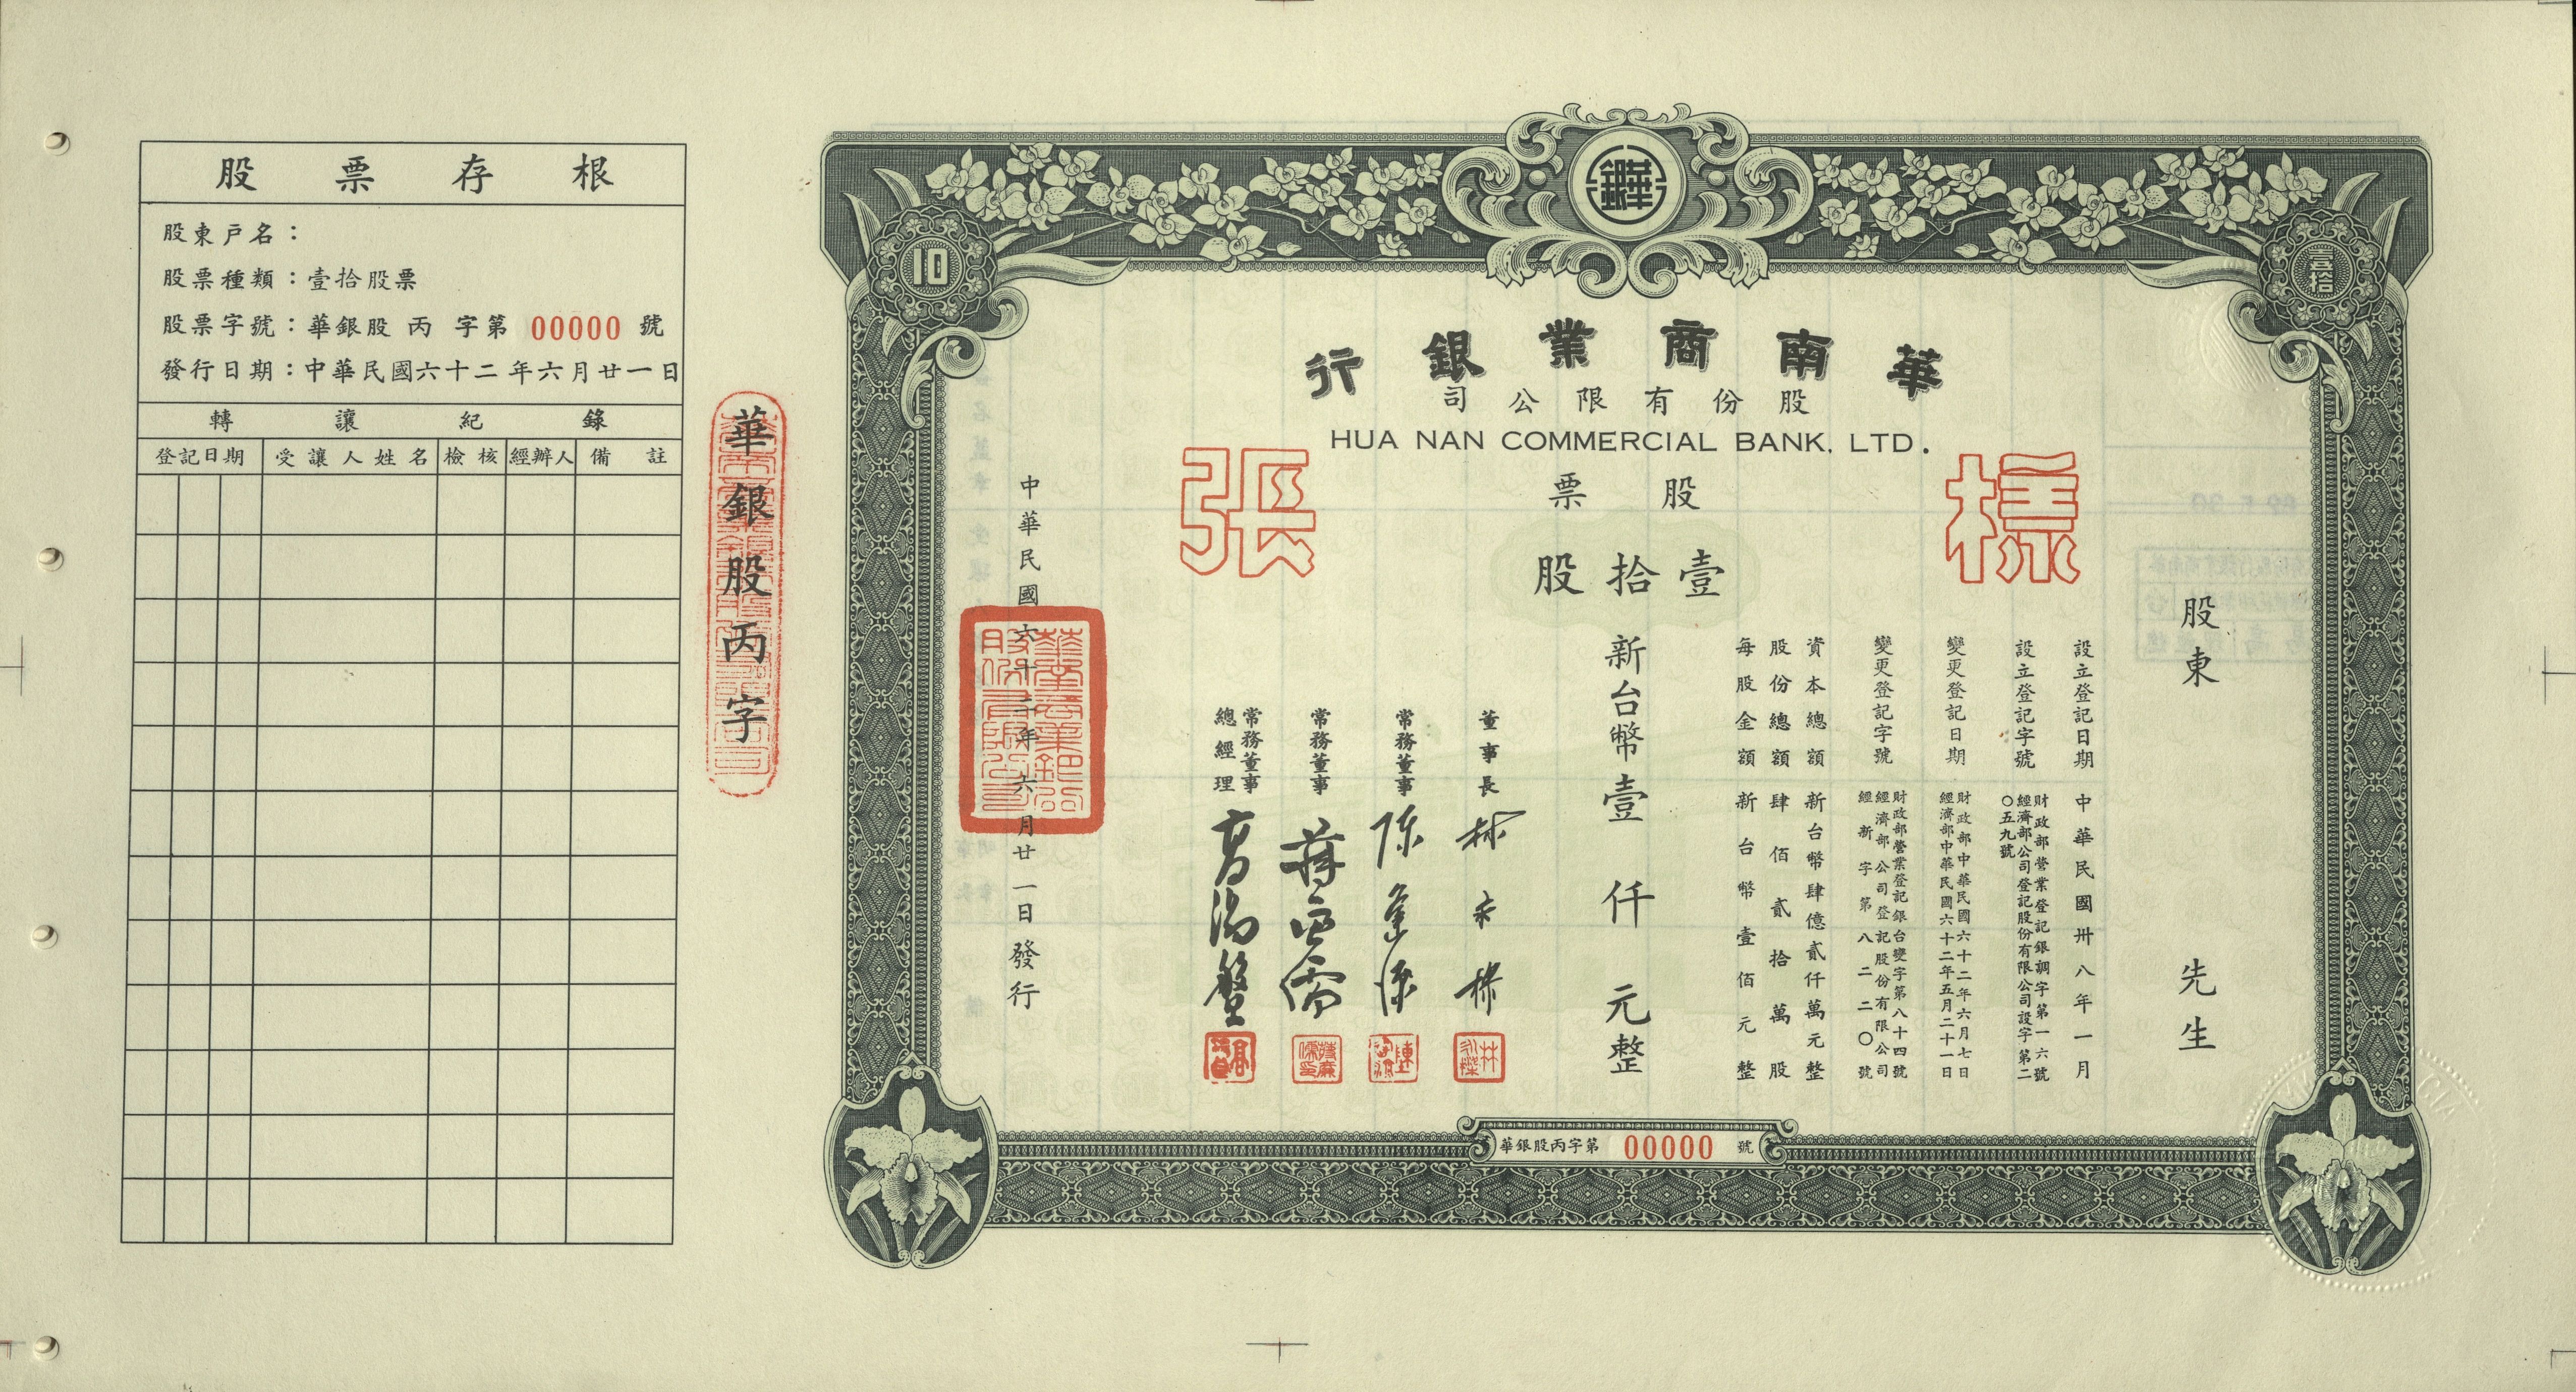 股票存根
股東戶名：
股票種類：壹拾股票
股票字號：華銀股 丙 字第 00000 號
發行日期：中華民國六十二年六月廿一日
轉讓紀錄
登記日期 受讓人姓名 檢核 經辦人 備註
華銀股丙字
10
壹拾
華南商業銀行
股份有限公司
HUA NAN COMMERCIAL BANK, LTD.
標張
股票
壹拾股
股東 先生
設立登記日期 中華民國卅八年一月
設立登記字號 財政部營業登記銀調字第一六號
經濟部公司登記股份有限公司設字第二
〇五九號
變更登記日期 財政部中華民國六十二年六月七日
經濟部中華民國六十二年五月二十一日
變更登記字號 財政部營業登記銀台變字第八十四號
經濟部公司登記股份有限公司
經新字第八二二〇號
資本總額 新台幣肆億貳仟萬元整
股份總額 肆佰貳拾萬股
每股金額 新台幣壹佰元整
新台幣壹仟元整
董事長 林永樑
常務董事 陳
常務董事 蔣
常務董事
總經理 高湯盤
中華民國六十二年六月廿一日發行
華銀股丙字第 00000 號